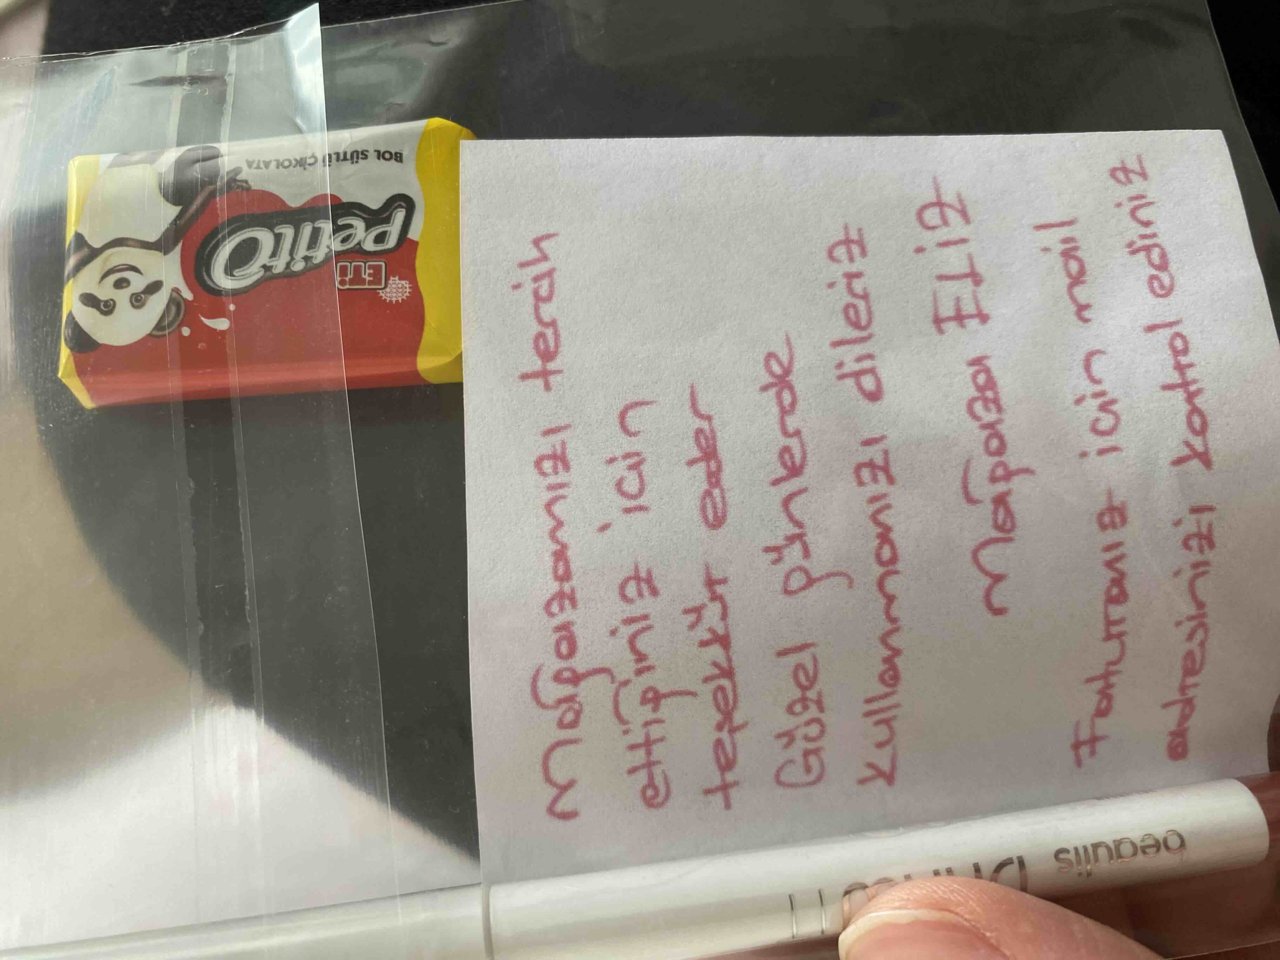 BOL SÜTLÜ ÇİKOLATA
ETİ
Petito
Mağazamızı tercih
ettiğiniz için
teşekkür eder
Güzel günlerde
kullanmanızı dileriz
Mağaza ELİZ
Faturanız için mail
adresinizi kontrol ediniz
beaulis